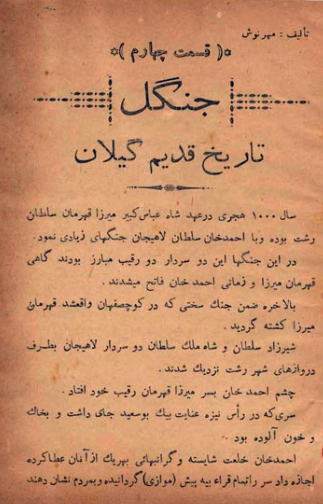 تألیف : مهرنوش
*( قسمت چهارم )*
جنگل
تاریخ قدیم گیلان
سال ۱۰۰۰ هجری درعهد شاه عباس کبیر میرزا قهرمان سلطان
رشت بوده وبا احمدخان سلطان لاهیجان جنگهای زیادی نمود.
در این جنگها این دو سردار دو رقیب مبارز بودند گاهی
قهرمان میرزا و زمانی احمد خان فاتح میشدند .
بالاخره ضمن جنك سختی که در کوچصفهان واقعشد قهرمان
میرزا کشته گردید .
شیرزاد سلطان و شاه ملك سلطان دو سردار لاهیجان بطرف
دروازهای شهر رشت نزدیك شدند .
چشم احمد خان بسر میرزا قهرمان رقیب خود افتاد .
سری که در رأس نیزه عنایت بیك بوسعید جای داشت و بخاك
و خون آلوده بود .
احمدخان خلعت شایسته و گرانبهائی بهریك از آنان عطا کرده
اجازه داد سر راتمام قراء بیه پیش (موازی) گردانیده وبمردم نشان دهند